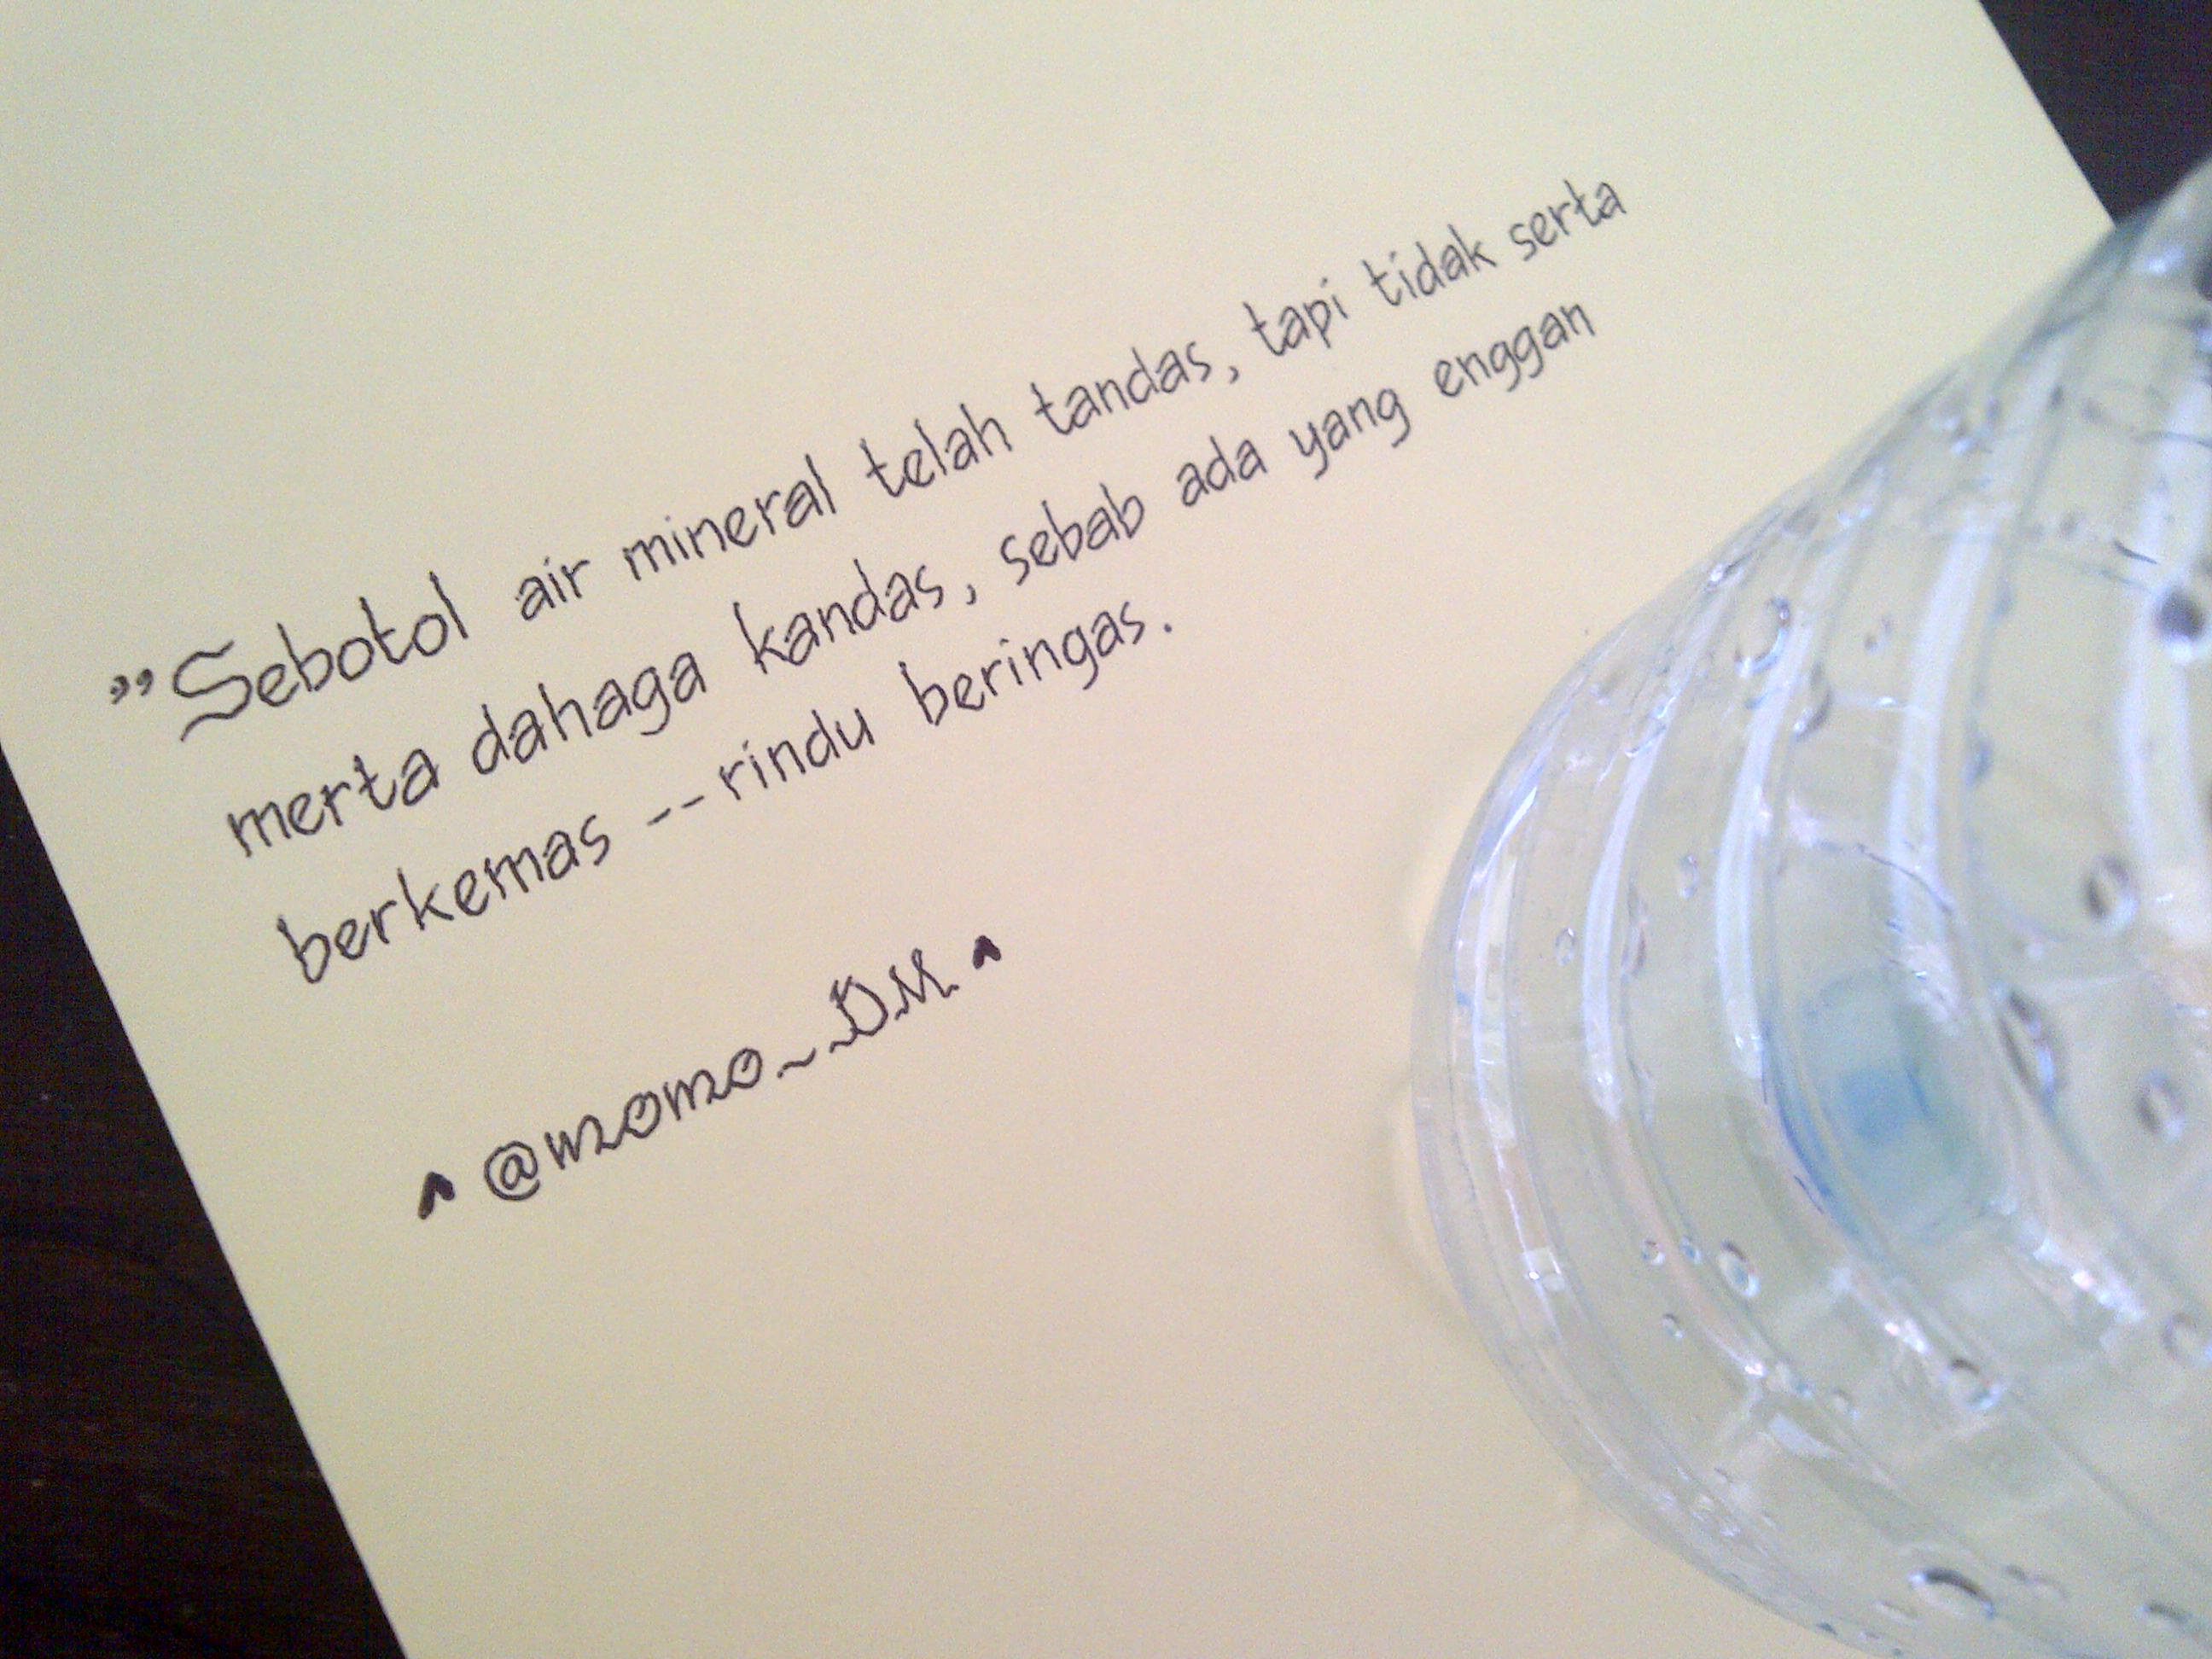 "Sebotol air mineral telah tandas, tapi tidak serta
merta dahaga kandas, sebab ada yang enggan
berkemas --rindu beringas.
@momo_DM